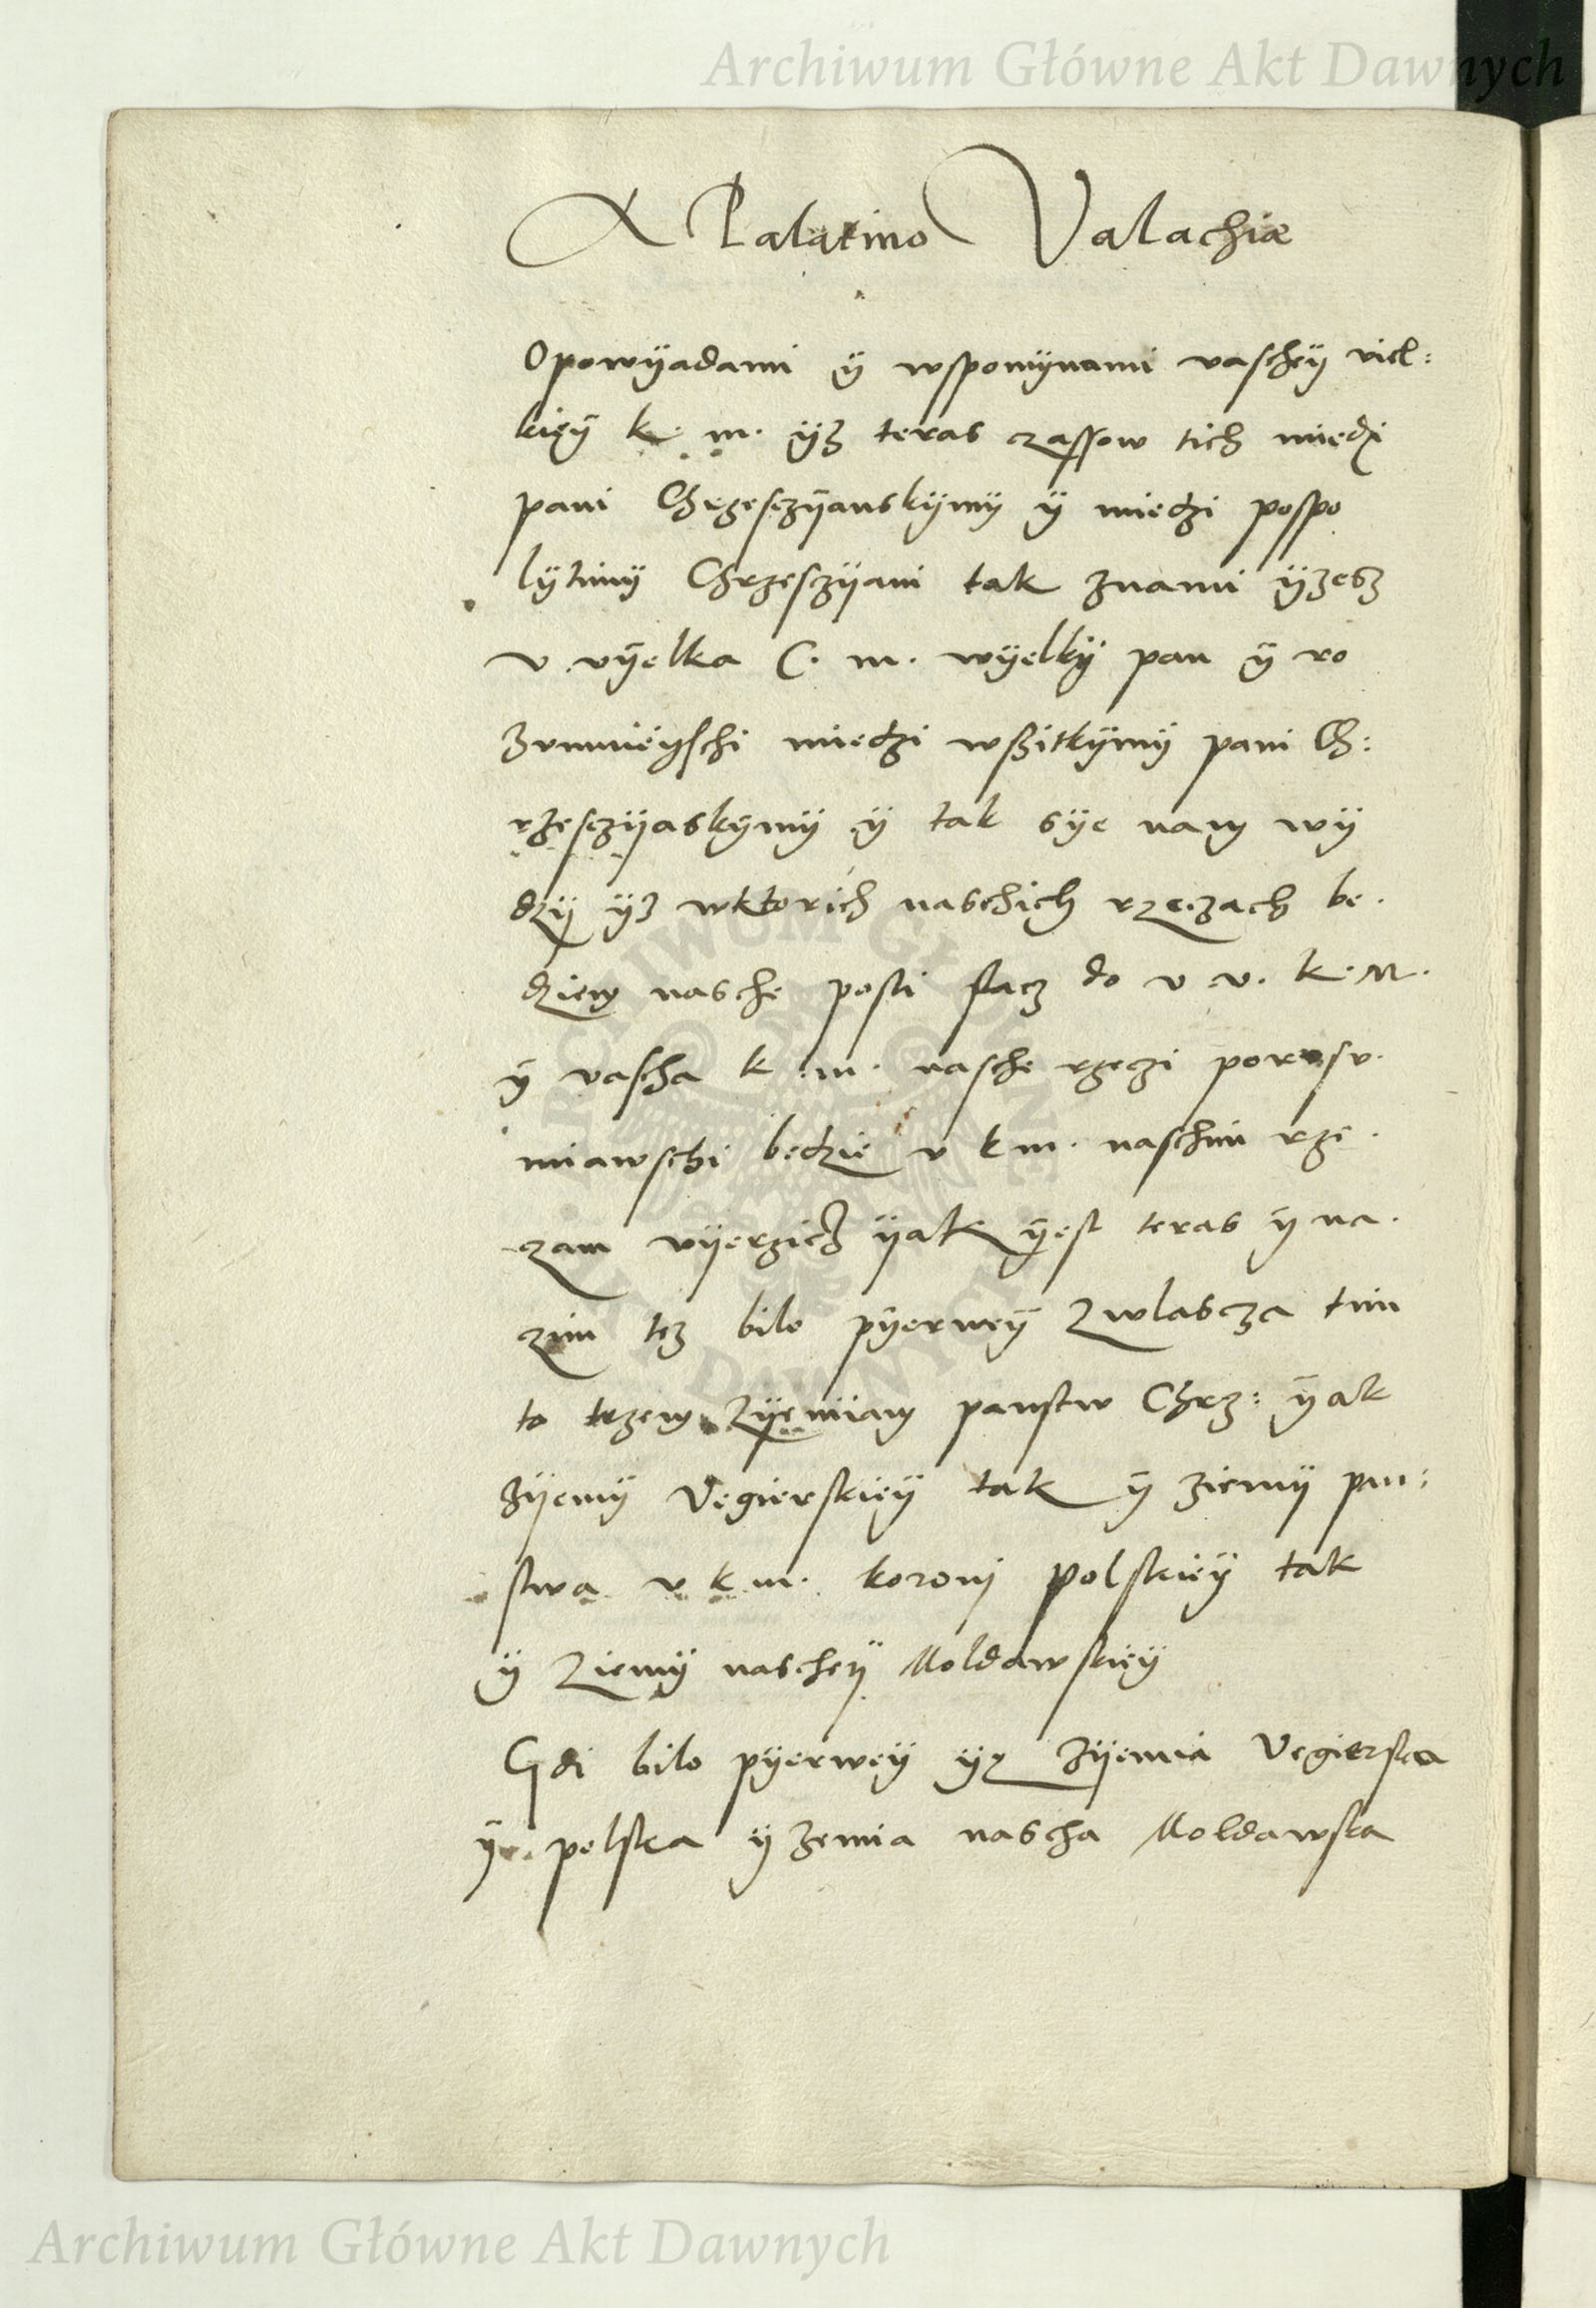 Archiwum Główne Akt Dawnych
A Palatino Valachiæ
Opowÿadami ÿ wspomÿnami vascheÿ viel:
kieÿ k. m. ÿz teras czassow tich miedzi
pani Chrzesczÿanskÿmÿ ÿ miedzi pospo
lÿtimÿ Chrzesczÿani tak znami ÿzesz
v vÿelka C. m. wÿelkÿ pan ÿ ro
zumnieÿschi miedzi wszitkÿmÿ pani Ch:
rzesczÿaskÿmÿ ÿ tak sÿe nam wÿ
dzÿ ÿz wktorich naschich rzeczach be.
dziem nasche posli slacz do v v. k. M.
ÿ vascha k. m. nasche rzeczi porosv.
miawschi bedzie v k m. naschim rze.
czam vÿerzicz ÿak ÿest teras ÿ na.
czim tez bilo pÿerweÿ zwlascza tim
to trzem zÿemiam panstw Chrz: ÿak
zÿemÿ Vegierskieÿ tak ÿ ziemÿ pan:
stwa v k m. koronj polskieÿ tak
ÿ ziemÿ nascheÿ Moldawskieÿ
Gdi bilo pÿerweÿ ÿz zÿemia Vegierska
ÿ polska ÿ zemia nascha Moldawska
ARCHIWUM GŁÓWNE AKT DAWNYCH
Archiwum Główne Akt Dawnych